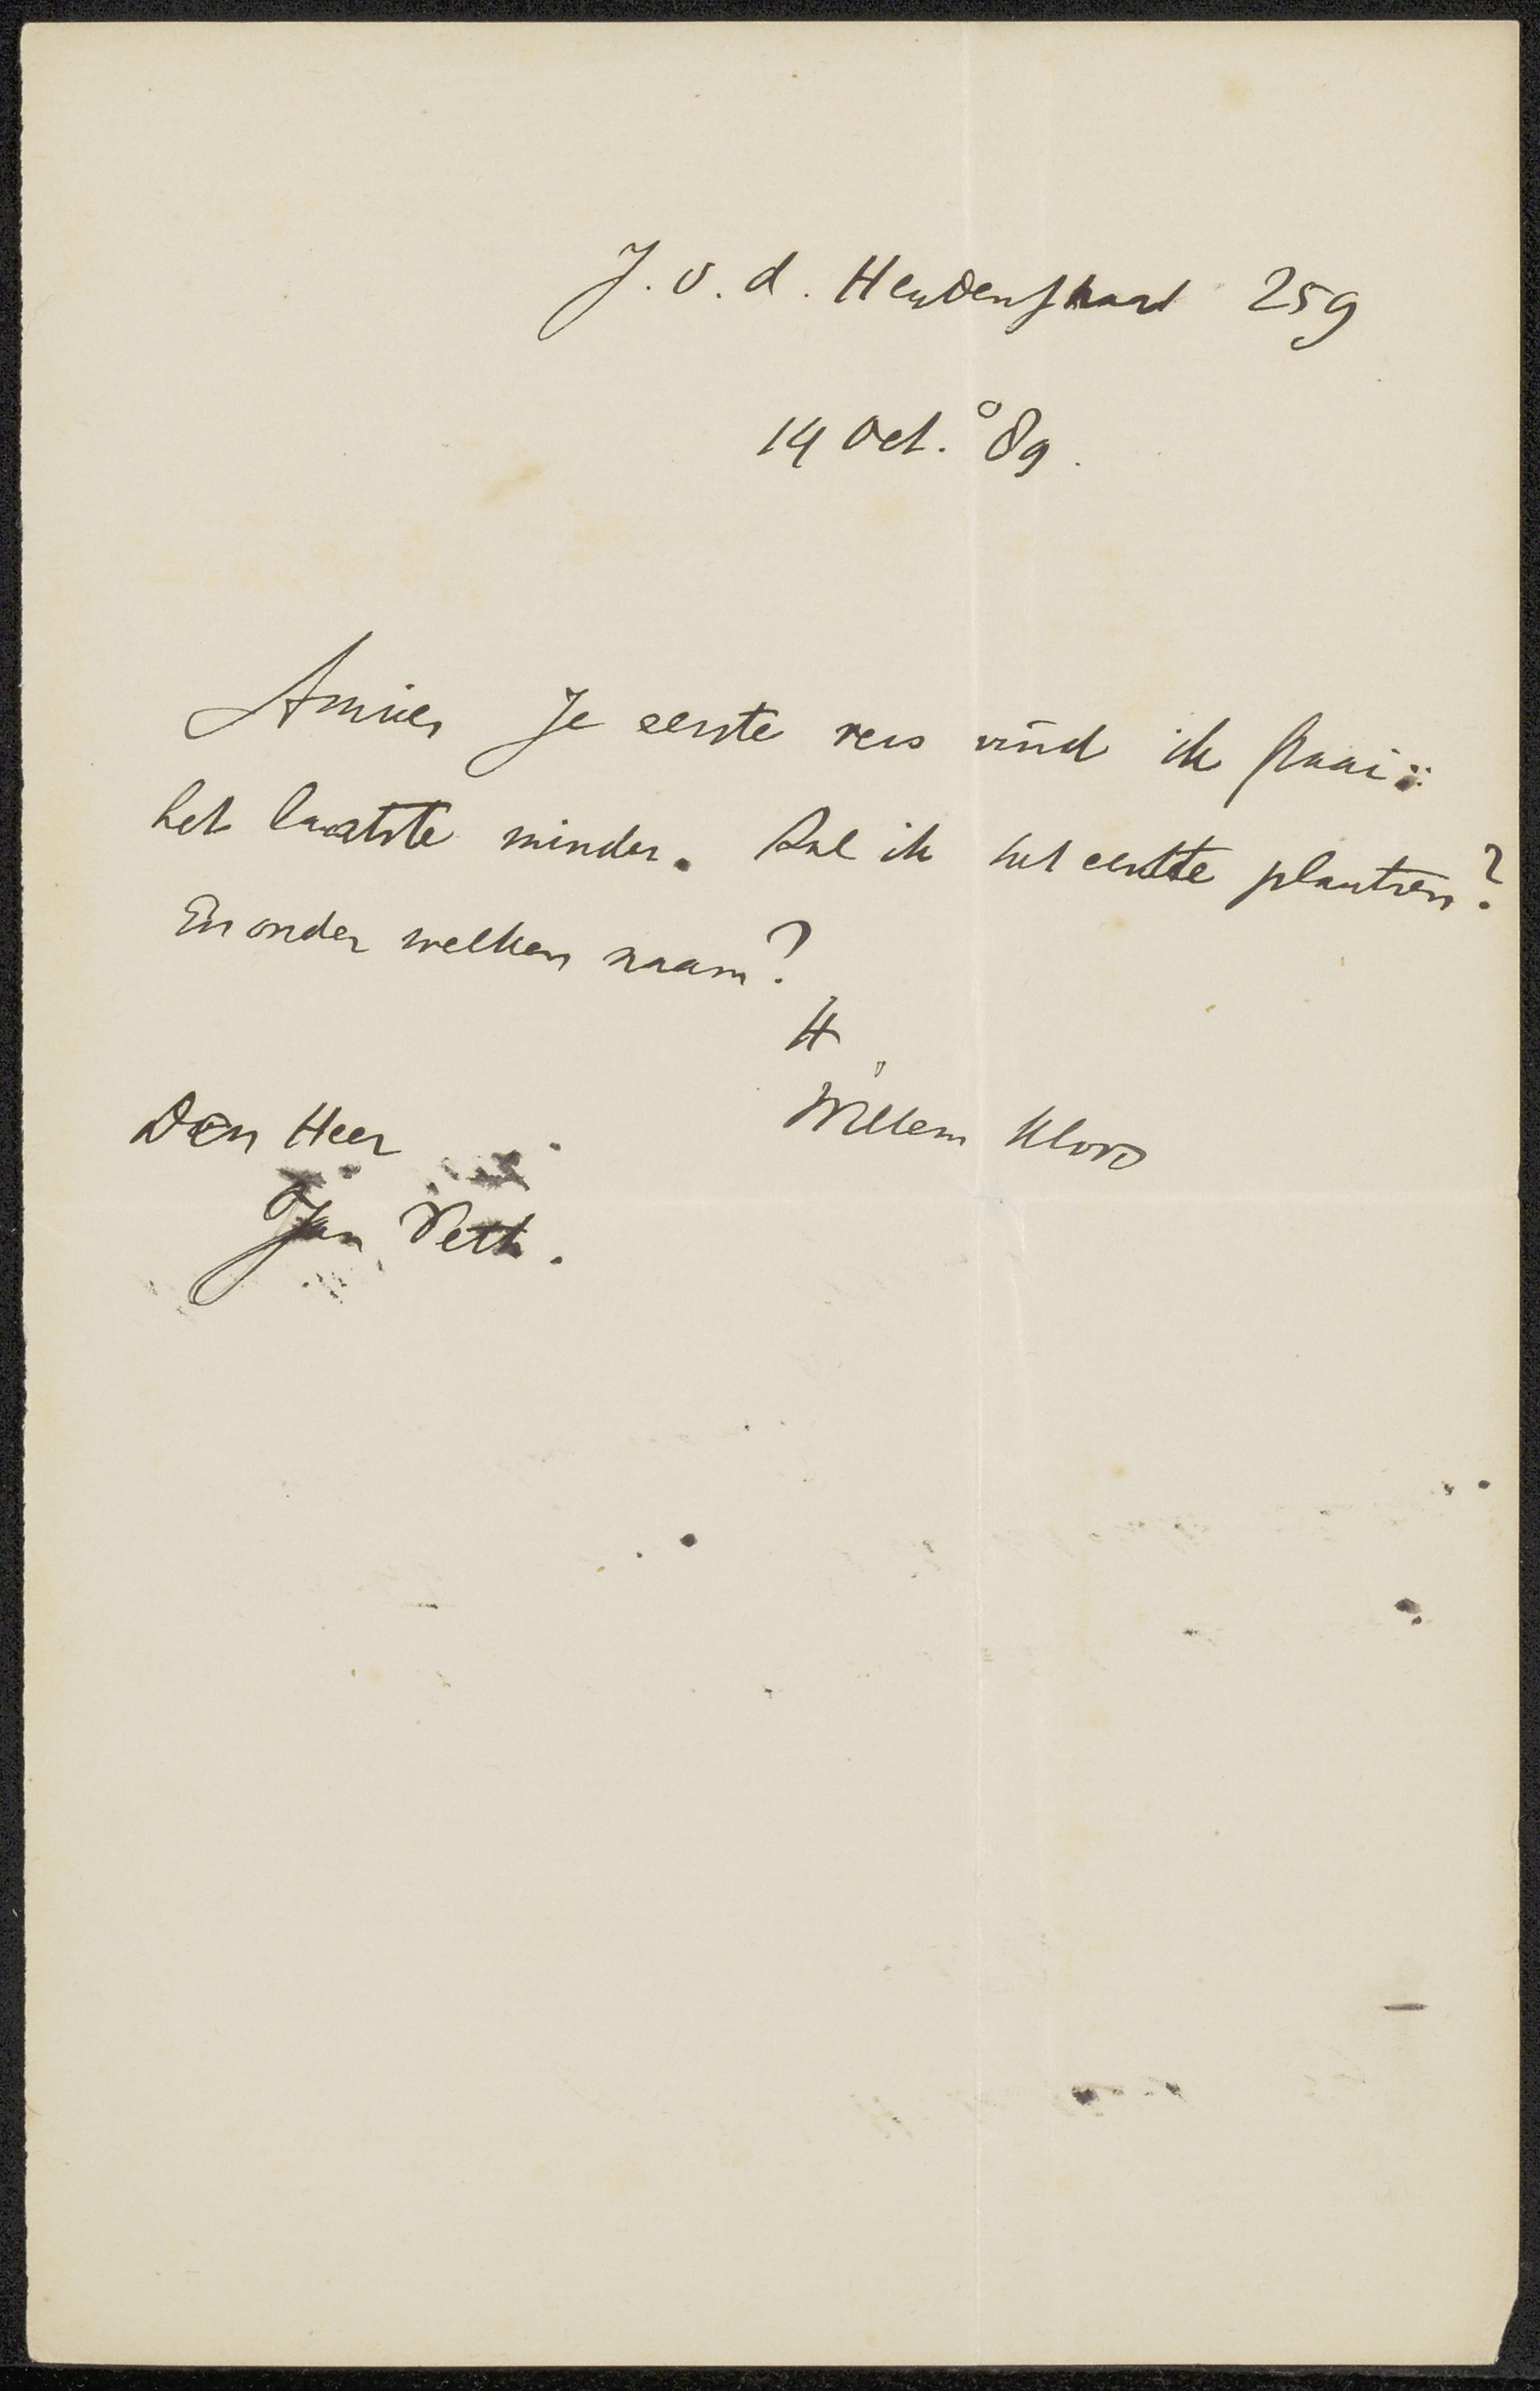 J. v. d. Heydenstraat 259
14 Oct. '89.
Amice, Je eerste vers vind ik fraai:
het laatste minder. Zal ik het eerste plaatsen?
En onder welken naam?
tt
Willem Kloos
Den Heer
Jan Veth.